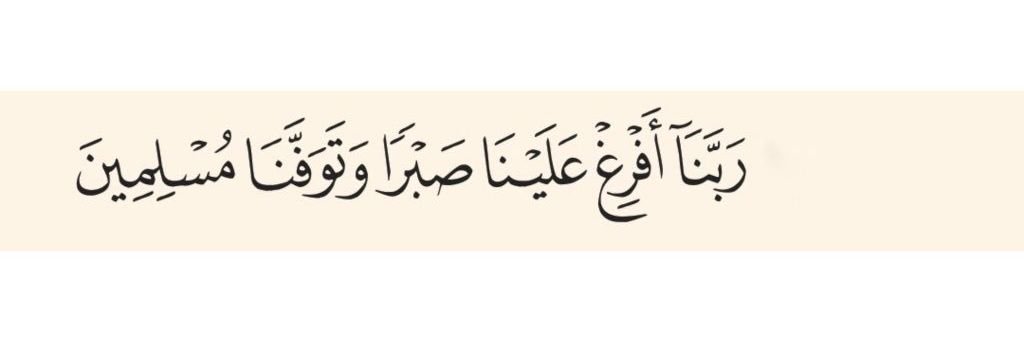 رَبَّنَآ أَفْرِغْ عَلَيْنَا صَبْرًا وَتَوَفَّنَا مُسْلِمِينَ